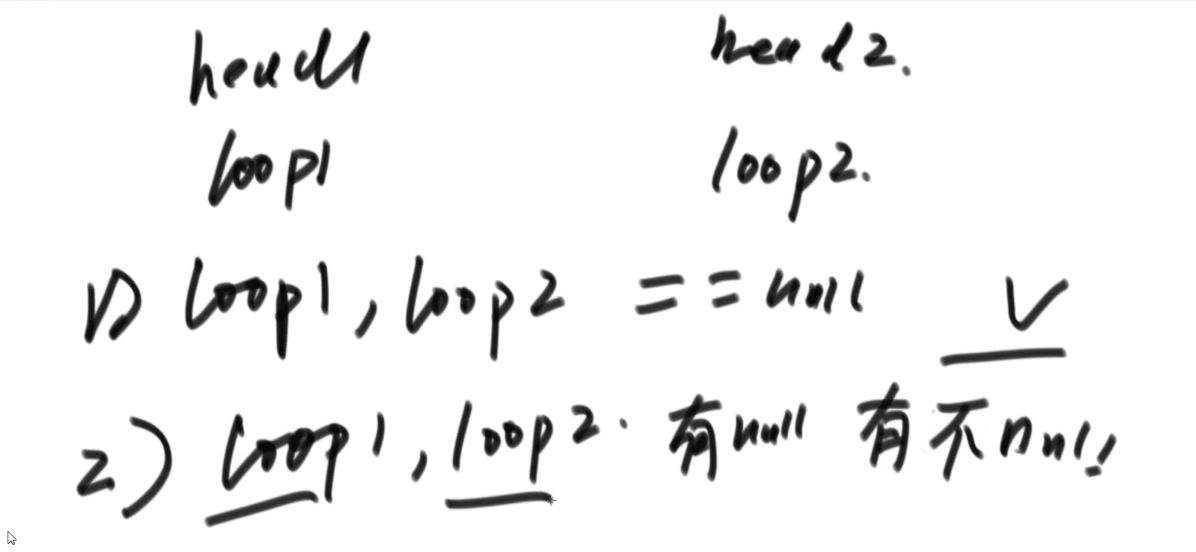 head1 head2.
loop1 loop2.
1) loop1, loop2 == null √
2) loop1, loop2. 有null 有不null